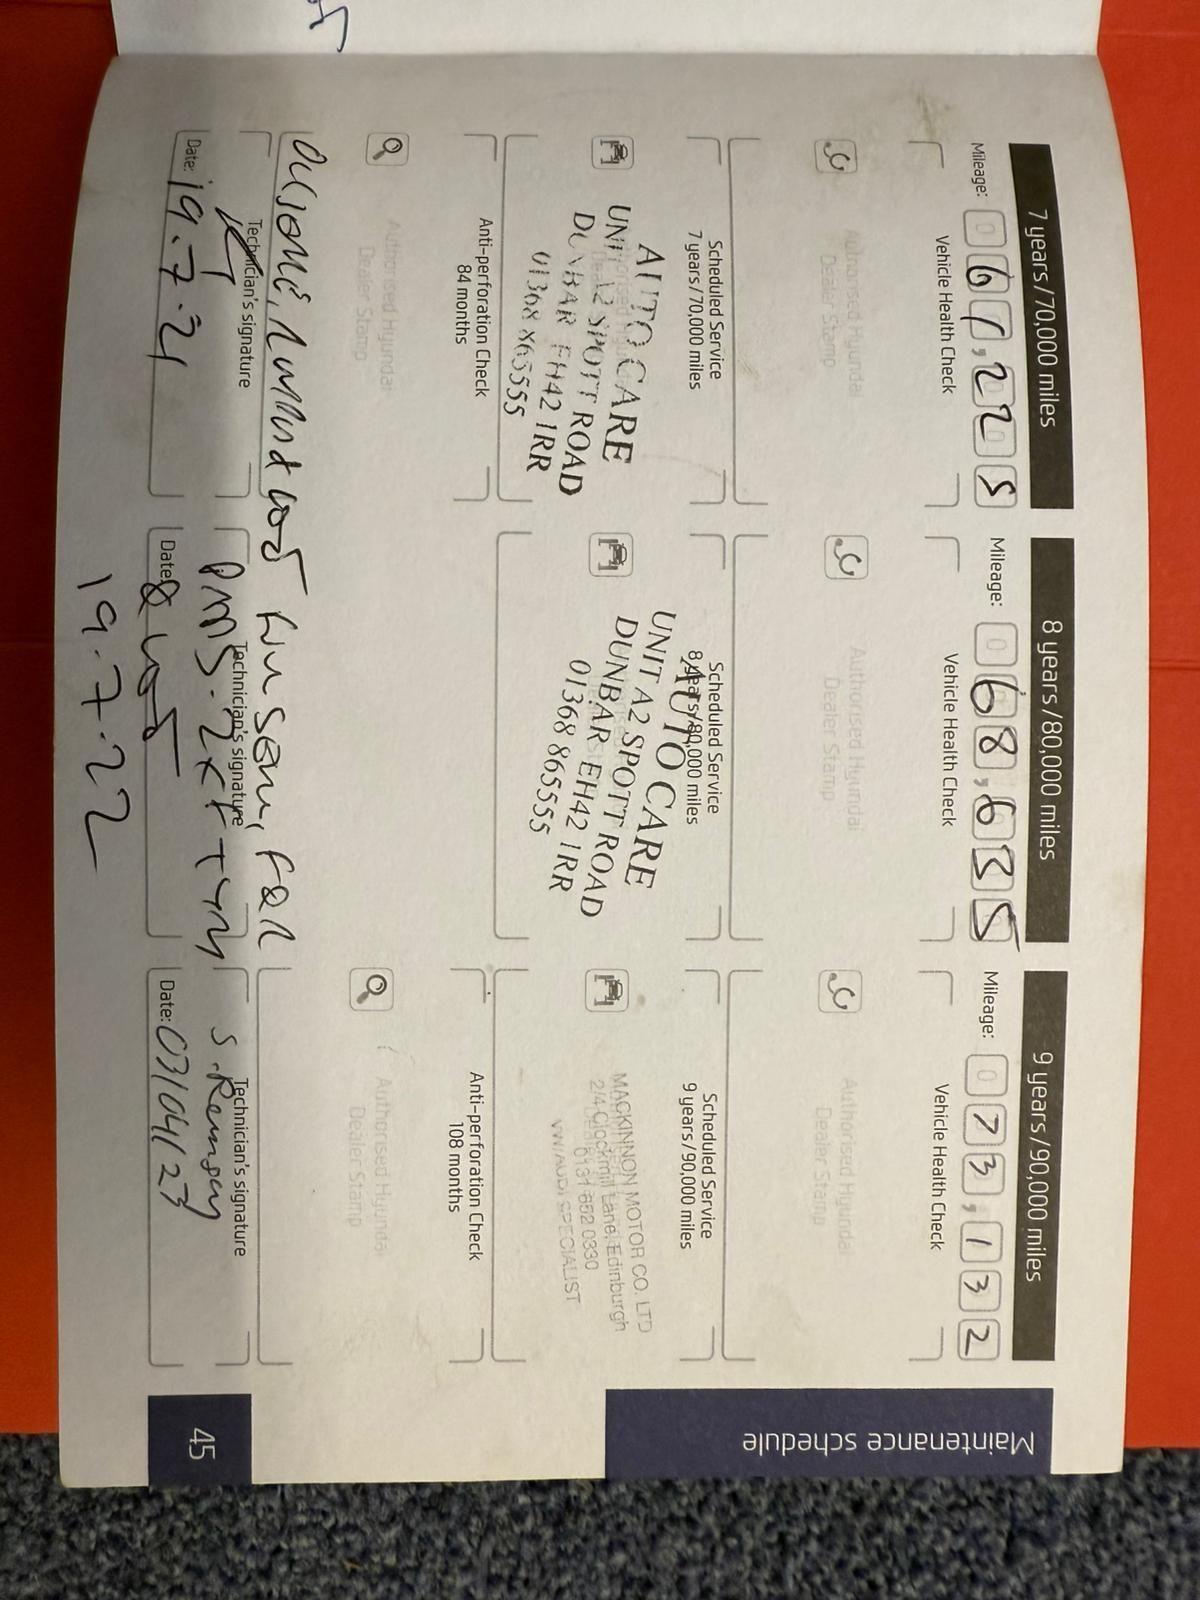 7 years/70,000 miles
Mileage: 061,225
Vehicle Health Check
Authorised Hyundai
Dealer Stamp
Scheduled Service
7 years/70,000 miles
AUTO CARE
UNIT A2 SPOTT ROAD
DUNBAR EH42 1RR
01368 865555
Anti-perforation Check
84 months
Authorised Hyundai
Dealer Stamp
Technician's signature
Date: 19.7.21
8 years/80,000 miles
Mileage: 068,635
Vehicle Health Check
Authorised Hyundai
Dealer Stamp
Scheduled Service
8 years/80,000 miles
AUTO CARE
UNIT A2 SPOTT ROAD
DUNBAR EH42 1RR
01368 865555
Technician's signature
Date:
19.7.22
9 years/90,000 miles
Mileage: 073,132
Vehicle Health Check
Authorised Hyundai
Dealer Stamp
Scheduled Service
9 years/90,000 miles
MACKINNON MOTOR CO. LTD
2/4 Clockmill Lane, Edinburgh
0131 652 0330
VW/AUDI SPECIALIST
Anti-perforation Check
108 months
Authorised Hyundai
Dealer Stamp
Technician's signature
Date: 03/04/23
Maintenance schedule
45